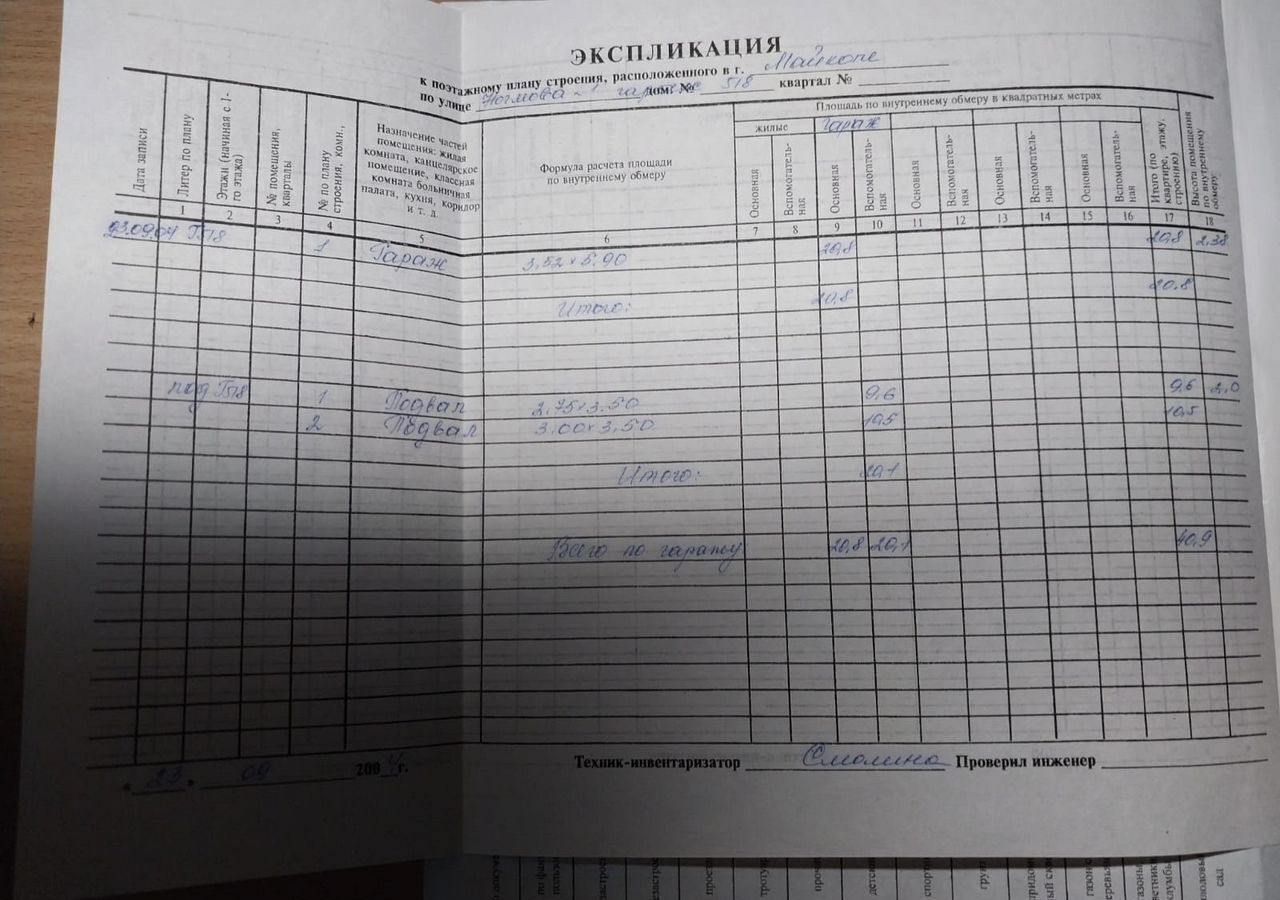 ЭКСПЛИКАЦИЯ
к поэтажному плану строения, расположенного в г. Майкопе
по улице дом № гараж 518 квартал №
Дата записи
Литер по плану
Этажи (начиная с 1-го этажа)
№ помещения, кварталы
№ по плану строения, комн.,
Назначение частей помещения: жилая комната, канцелярское помещение, классная комната больничная палата, кухня, коридор и т. д.
Формула расчета площади по внутреннему обмеру
Площадь по внутреннему обмеру в квадратных метрах
жилые гараж
Основная Вспомогатель-ная Основная Вспомогатель-ная Основная Вспомогатель-ная Основная Вспомогатель-ная Основная Вспомогатель-ная
Итого (по этажу, квартире, строению)
Высота помещения по внутреннему обмеру
1 2 3 4 5 6 7 8 9 10 11 12 13 14 15 16 17 18
23.09.04 Г518 1 Гараж 3,52 x 5.90 20,8 20,8 2,38
Итого: 20,8 20,8
под Г518 1 Подвал 2.75 x 3.50 9,6 9,6 2,0
2 Подвал 3.00 x 3.50 10,5 10,5
Итого: 20,1
Всего по гаражу 20,8 20,1 40,9
« 23 » 09 2004 г.
Техник-инвентаризатор Смолина Проверил инженер